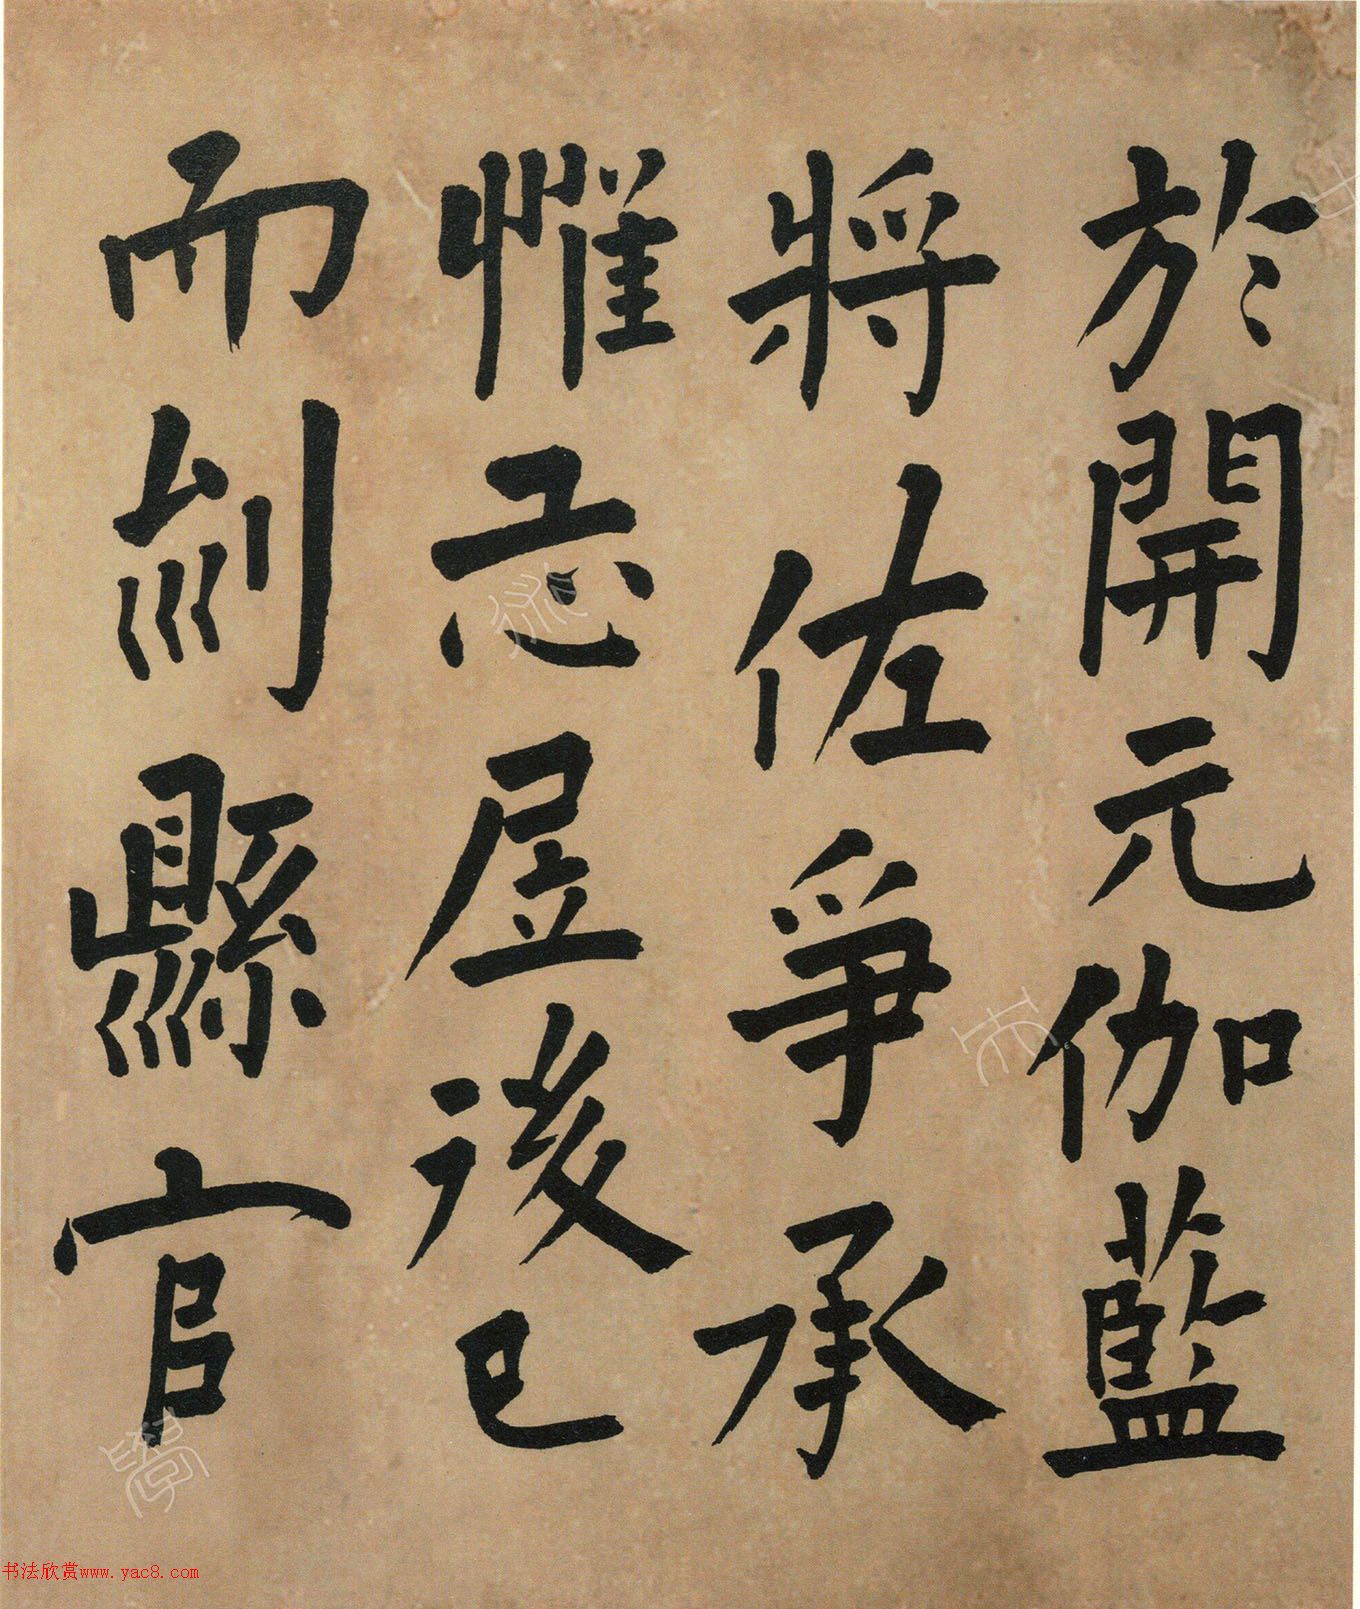 於開元伽藍
將佐爭承
惟恐居後已
而州縣官
书法欣赏www.yac8.com